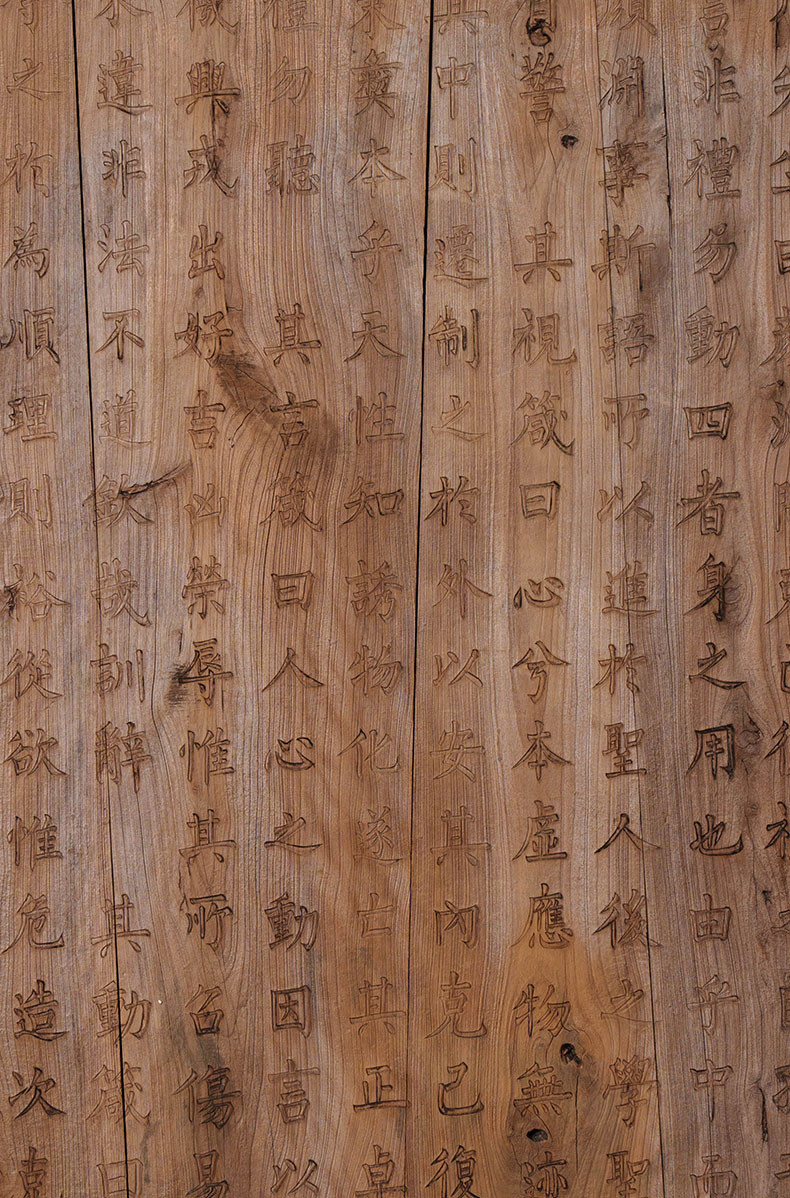 言非禮勿動四者身之用也由乎中而
顏淵事斯語所以進於聖人後之學聖
警 其視箴曰心兮本虛應物無迹
其中則遷制之於外以安其內克己復
秉彝本乎天性知誘物化遂亡其正卓
禮勿聽 其言箴曰人心之動因言以
機興戎出好吉凶榮辱惟其所召傷易
來違非法不道欽哉訓辭 其動箴曰
守之於為順理則裕從欲惟危造次克